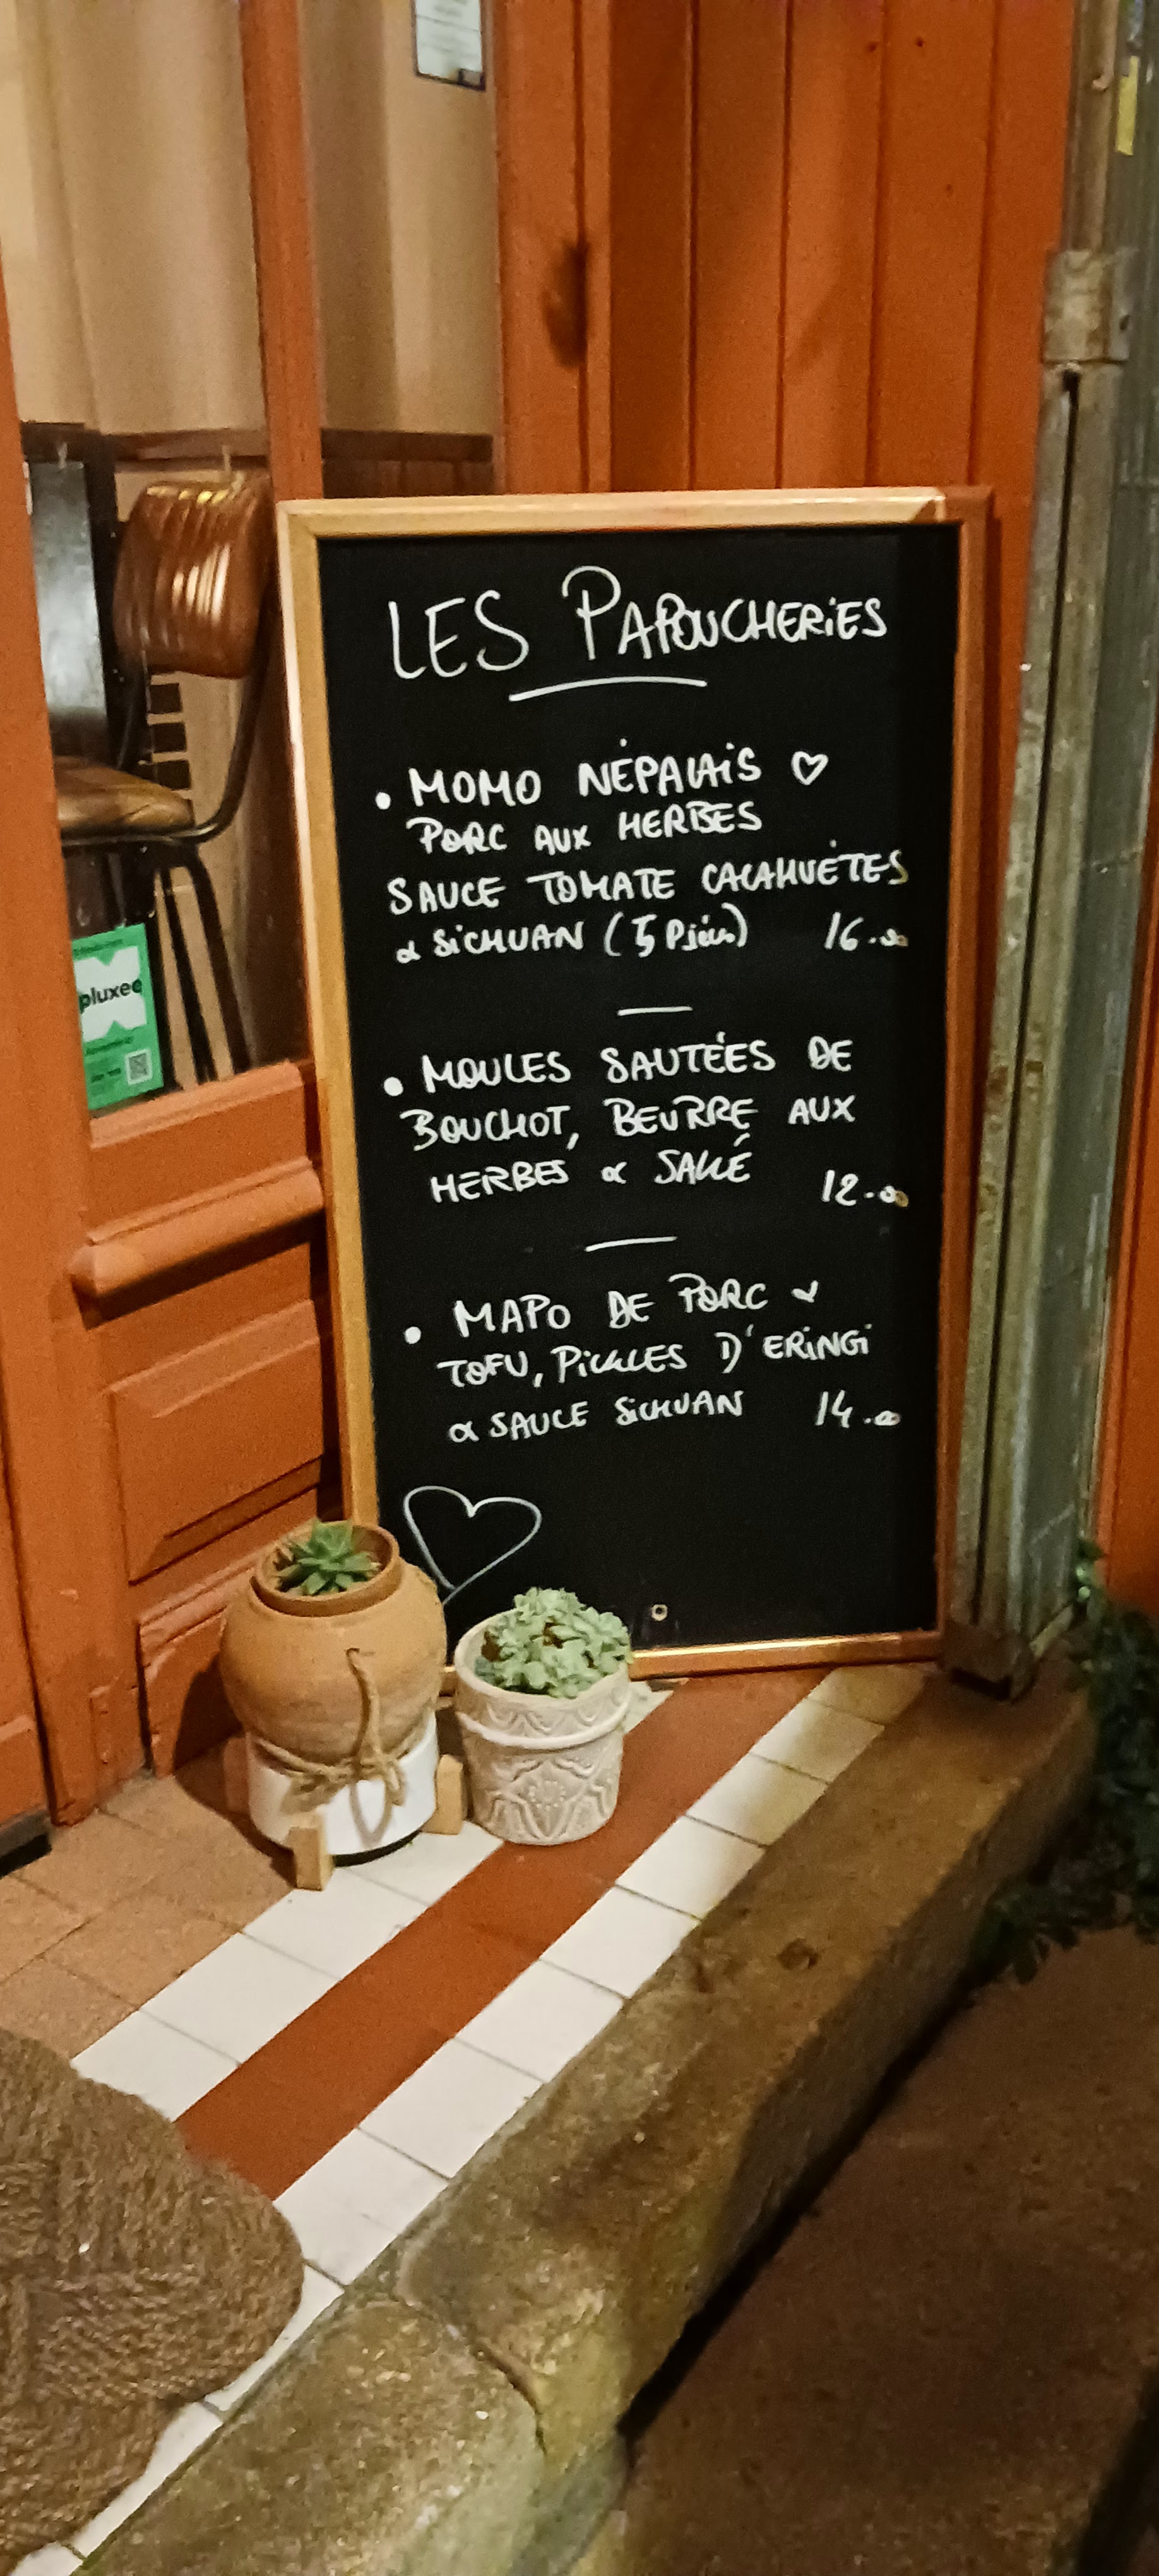 LES PAPOUCHERIES
• MOMO NÉPALAIS ♡
PORC AUX HERBES
SAUCE TOMATE CACAHUÈTES
& SICHUAN (5 Pièces) 16.00
• MOULES SAUTÉES DE
BOUCHOT, BEURRE AUX
HERBES & SAKÉ 12.00
• MAPO DE PORC &
TOFU, PICKLES D'ERINGI
& SAUCE SICHUAN 14.00
pluxee